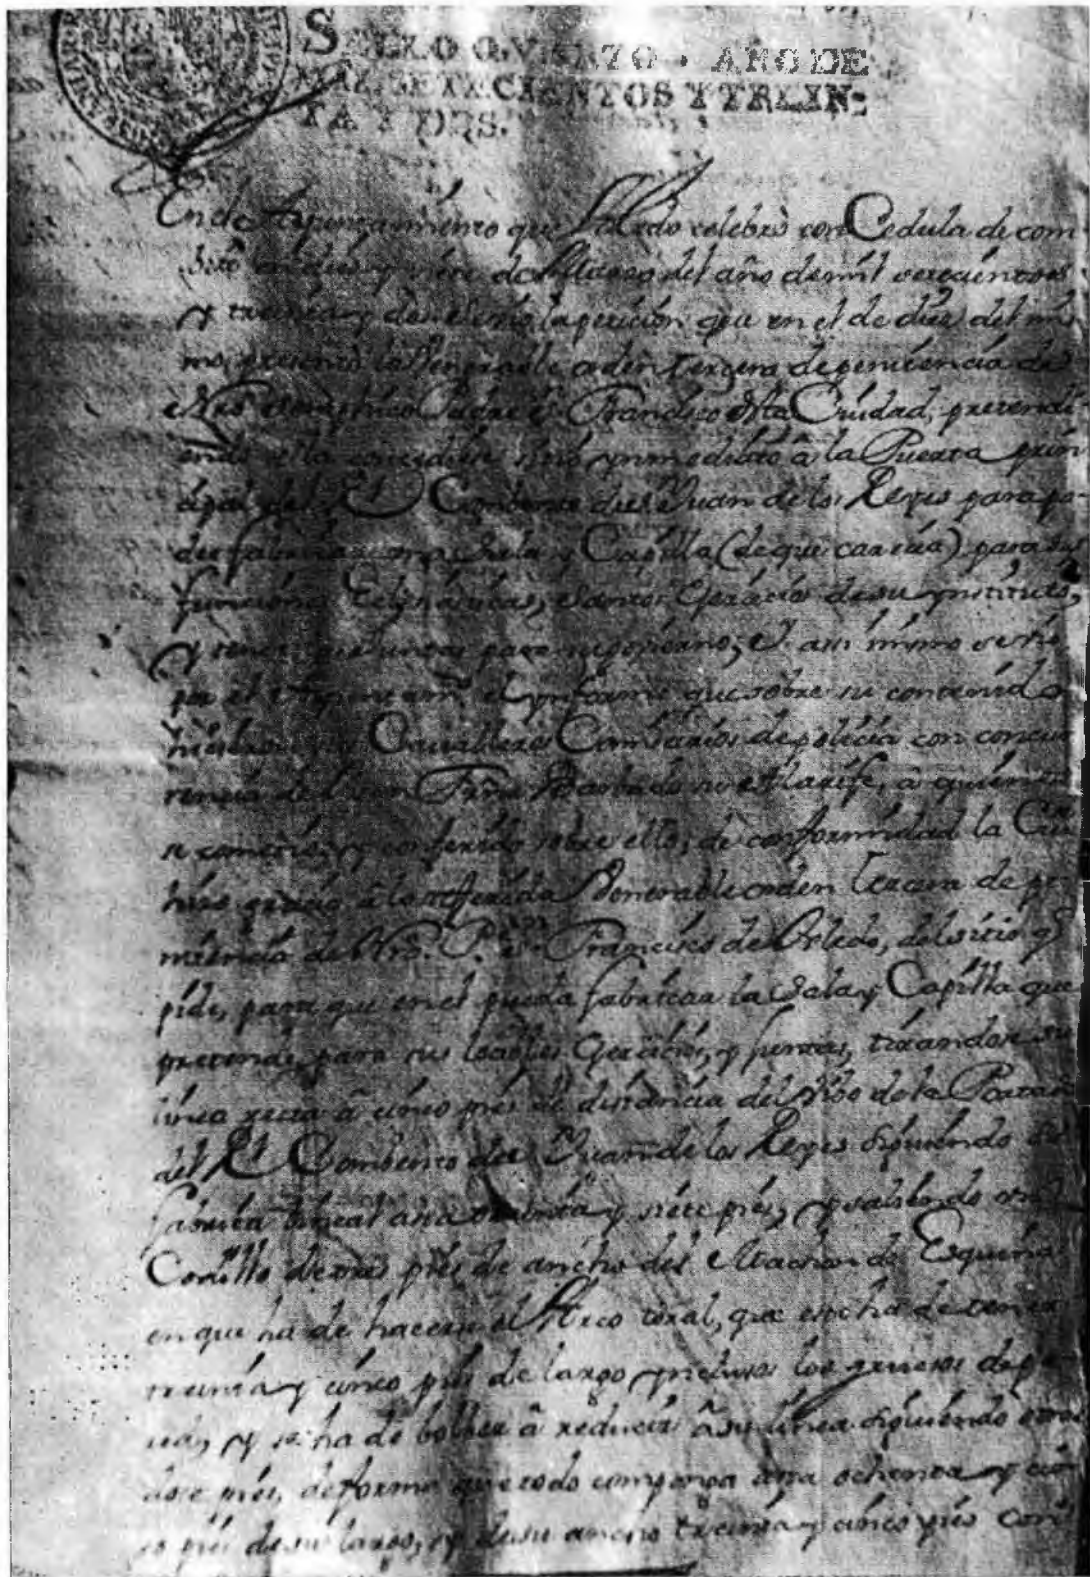 SELLO QVARTO, AÑO DE
MIL SETECIENTOS Y TREIN-
TA Y DOS.
En el Ayuntamiento que Toledo celebró con Cedula de com
del año de mil setecientos
y treinta y dos se vio la peticion que en el de diez del mis
mo, presentó la Venerable orden tercera de penitencia de
Seraphico Padre Sn. Francisco desta Ciudad, pretendi
endo se la concediese sitio ynmediato â la Puerta prin
cipal del Rl. Combento de Sn Juan de los Reyes para po
der fabricar una Sala y Capilla (de que carecia) para sus
funciones Eclesiasticas, Santos Exercicios de su ynstituto,
y tener sus juntas para su govierno; Y assi mismo se vio
por el Ayuntamto. el ynforme que sobre su contenido
hicieron los Cavalleros Comisarios de policia con concur
rencia de Fabian Barbado su Alarife, a quienes
se cometió, y conferido sobre ello, de conformidad la Ciud.
hizo gracia â la referida Venerable orden tercera de pe
nitencia de N. P. Sn. Francisco de Toledo, del sitio q
pide, para que en el pueda fabricar la Sala y Capilla que
pretende, para sus loables Exercicios, y juntas, tirandose su
linea recta â cinco pies de distancia del de la Portada
del Rl. Combento de Sn Juan de los Reyes siguiendo su
fabrica lineal asta y siete pies, y saliendo un
Codillo de tres pies de ancho del Machon de Esquina
en que ha de hacerse el Arco toral, que este ha de tener
treinta y cinco pies de largo ynclusos los gruesos de pa
red, y se ha de bolver â reducir â su linea siguiendo otros
doze pies, de forma que todo componga asta ochenta y cin
co pies de su largo, y de su ancho treinta y cinco pies con